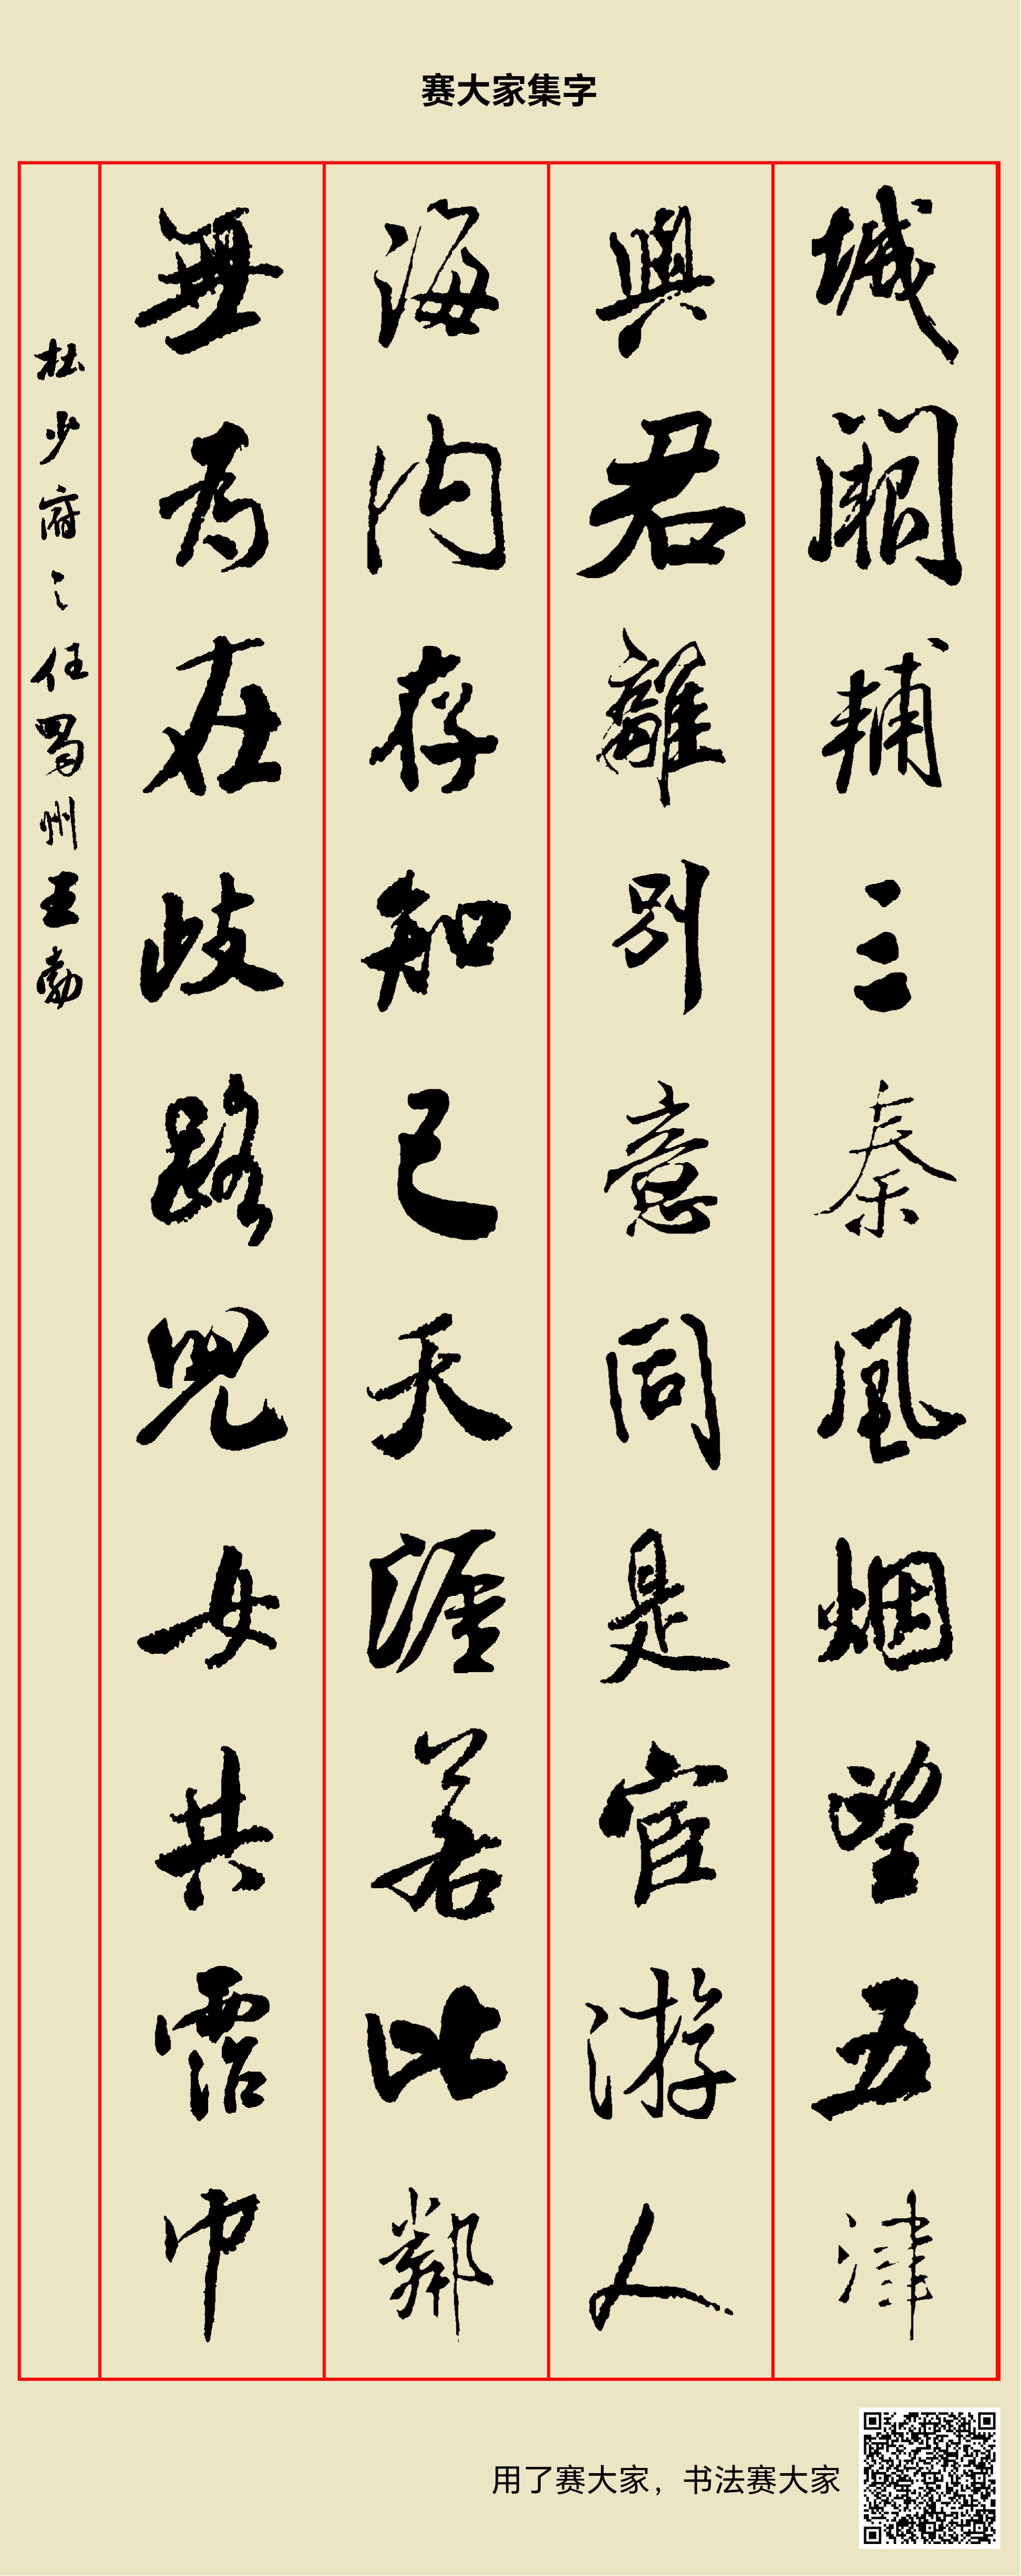 赛大家集字
城闕輔三秦風烟望五津
與君離別意同是宦游人
海内存知己天涯若比鄰
無為在歧路兒女共霑巾
杜少府之任蜀州王勃
用了赛大家，书法赛大家